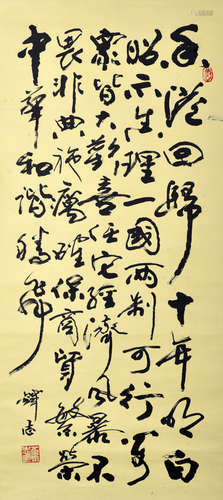 香港回歸十年明白
昭示真理一國兩制可行萬
眾皆大歡喜任它經濟風暴不
畏非典施虐確保商貿繁榮
中華和諧騰飛